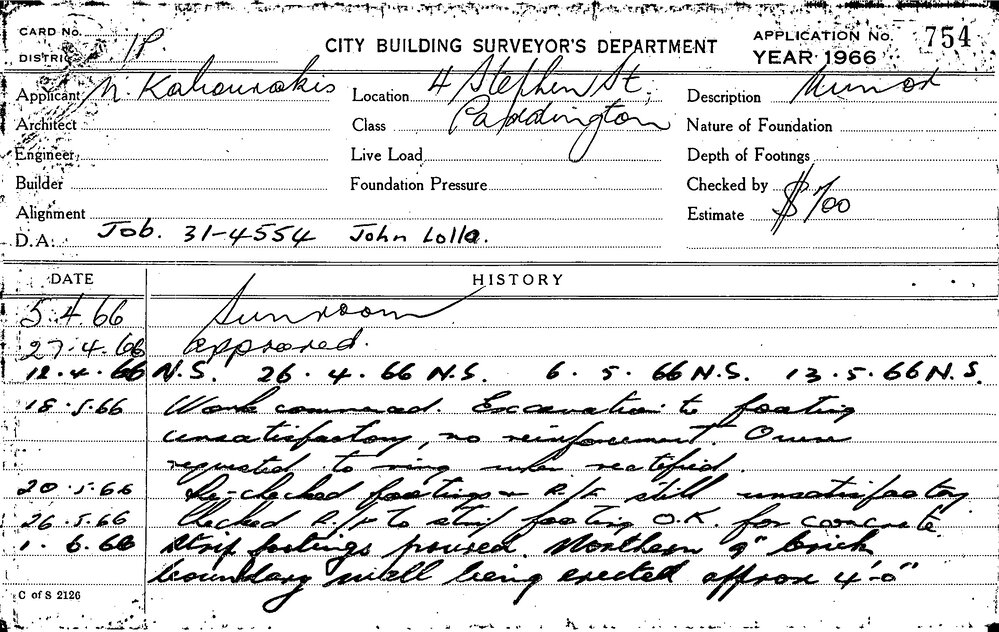 CARD No.
DISTRICT IP.
CITY BUILDING SURVEYOR'S DEPARTMENT
APPLICATION No. 754
YEAR 1966
Applicant N. Kahourakis
Location 4 Stephen St,
Description Minor
Architect
Class Paddington
Nature of Foundation
Engineer
Live Load
Depth of Footings
Builder
Foundation Pressure
Checked by
Alignment
Estimate $700
D.A: Job. 31-4554 John Lollo.
DATE HISTORY
5.4.66 Sunroom
27.4.66 approved.
12.4.66 N.S. 26.4.66 N.S. 6.5.66 N.S. 13.5.66 N.S.
18.5.66 Work commenced. Excavation to footing
unsatisfactory, no reinforcement. Owner
requested to ring when rectified.
20.5.66 Re-checked footings R/F still unsatisfactory
26.5.66 Checked R/F to strip footing O.K. for concrete
1.6.66 Strip footings poured. Northern 9" brick
boundary wall being erected approx 4'-0"
C of S 2126